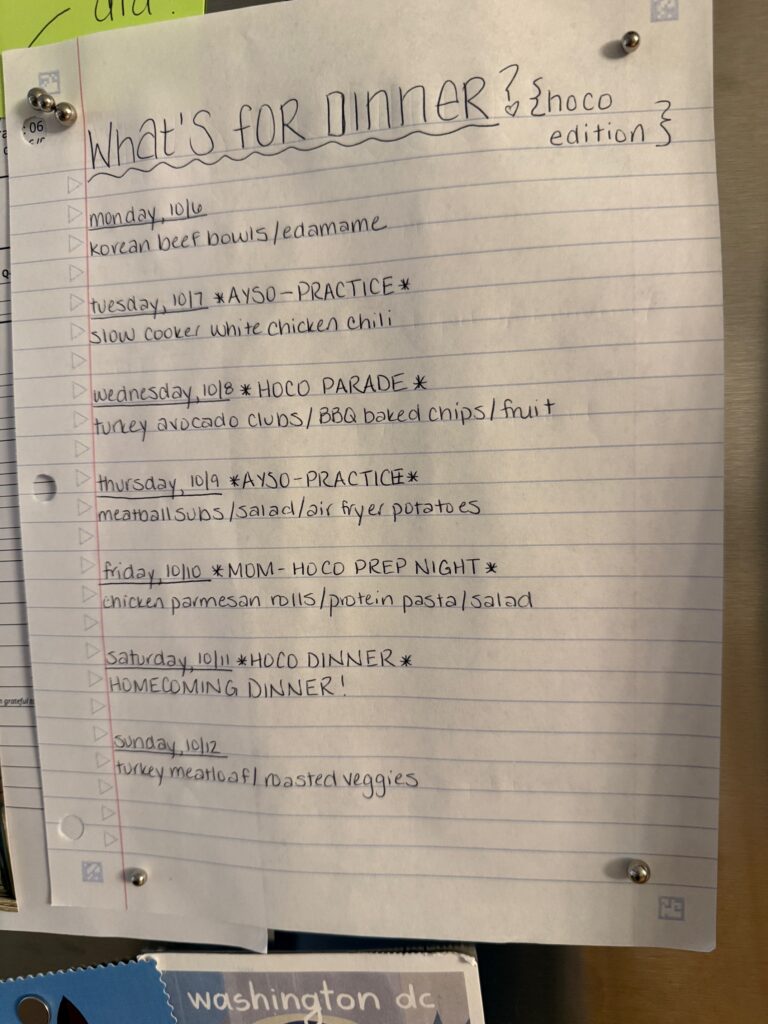 did!
:06
WHAT'S FOR DINNER? {hoco
edition}
monday, 10/6
korean beef bowls/edamame
tuesday, 10/7 *AYSO-PRACTICE*
slow cooker white chicken chili
wednesday, 10/8 * HOCO PARADE *
turkey avocado clubs/BBQ baked chips/fruit
thursday, 10/9 *AYSO-PRACTICE*
meatball subs/salad/air fryer potatoes
friday, 10/10 *MOM-HOCO PREP NIGHT*
chicken parmesan rolls/protein pasta/salad
saturday, 10/11 *HOCO DINNER*
HOMECOMING DINNER!
sunday, 10/12
turkey meatloaf/roasted veggies
grateful
washington dc